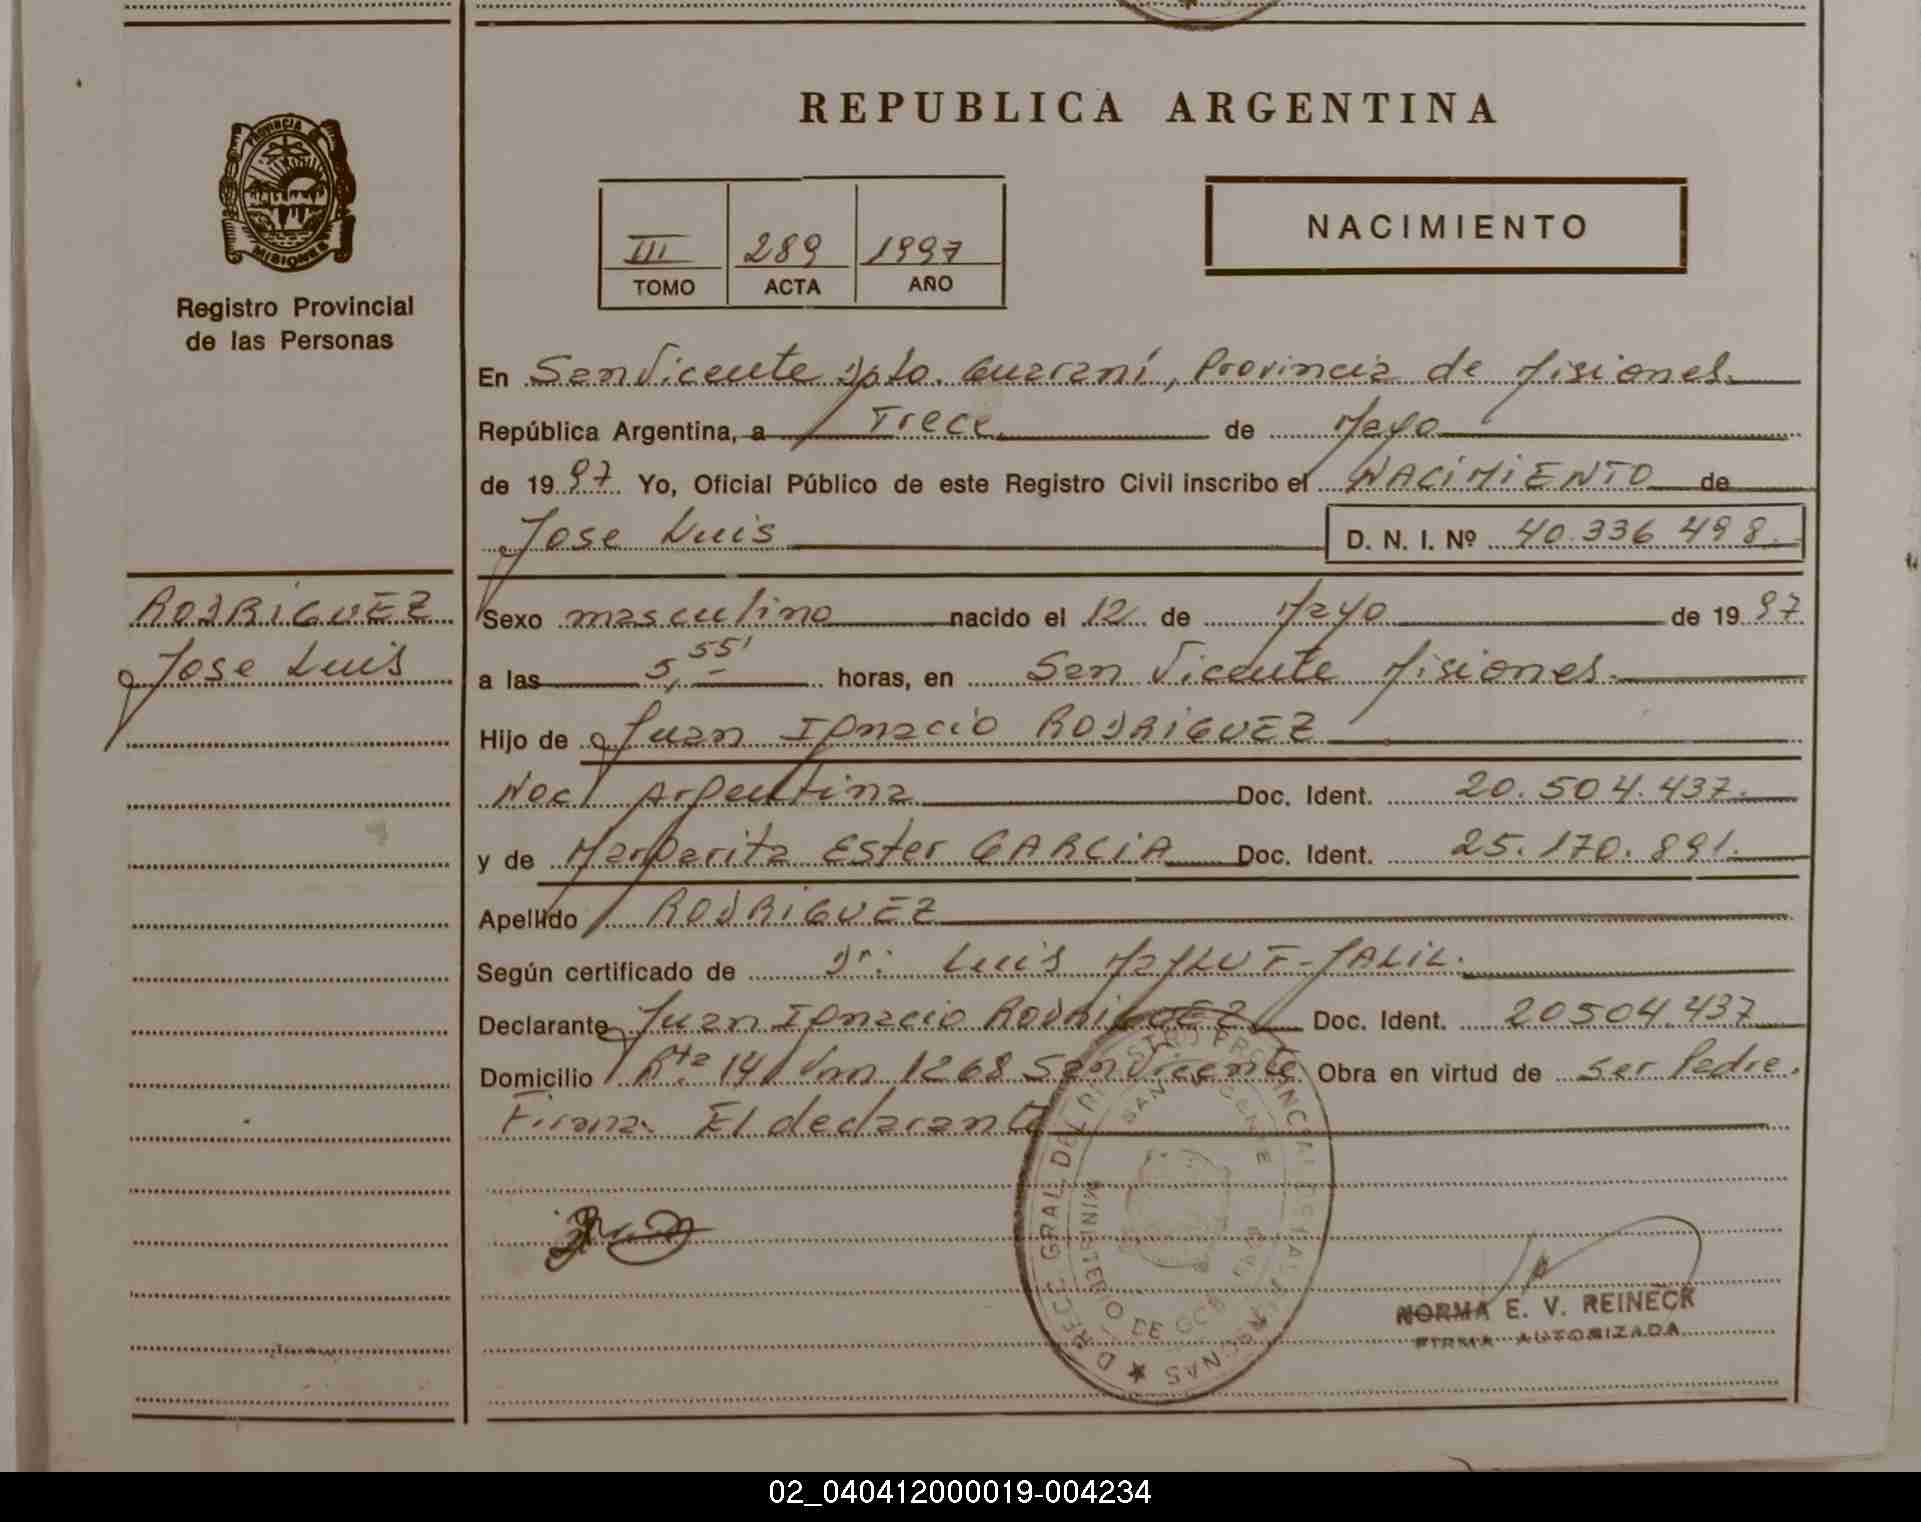 REPUBLICA ARGENTINA
PROVINCIA DE
MISIONES
Registro Provincial
de las Personas
III 289 1997
TOMO ACTA AÑO
NACIMIENTO
En San Vicente Dpto. Guaraní, Provincia de Misiones.
República Argentina, a Trece de Mayo
de 1997 Yo, Oficial Público de este Registro Civil inscribo el NACIMIENTO de
Jose Luis D. N. I. Nº 40.336 498.
RODRIGUEZ
Jose Luis
Sexo masculino nacido el 12 de Mayo de 1997
a las 5,55' horas, en San Vicente Misiones.
Hijo de Juan Ignacio RODRIGUEZ
Nac Argentina Doc. Ident. 20.504.437.
y de Margarita Ester GARCIA Doc. Ident. 25.170.891.
Apellido RODRIGUEZ
Según certificado de Dr: Luis JALIL.
Declarante Juan Ignacio RODRIGUEZ Doc. Ident. 20504.437
Domicilio Rta 14 Km 1268 San Vicente Obra en virtud de ser Padre.
Firma El declarante
NORMA E. V. REINECK
FIRMA AUTORIZADA
02_040412000019-004234